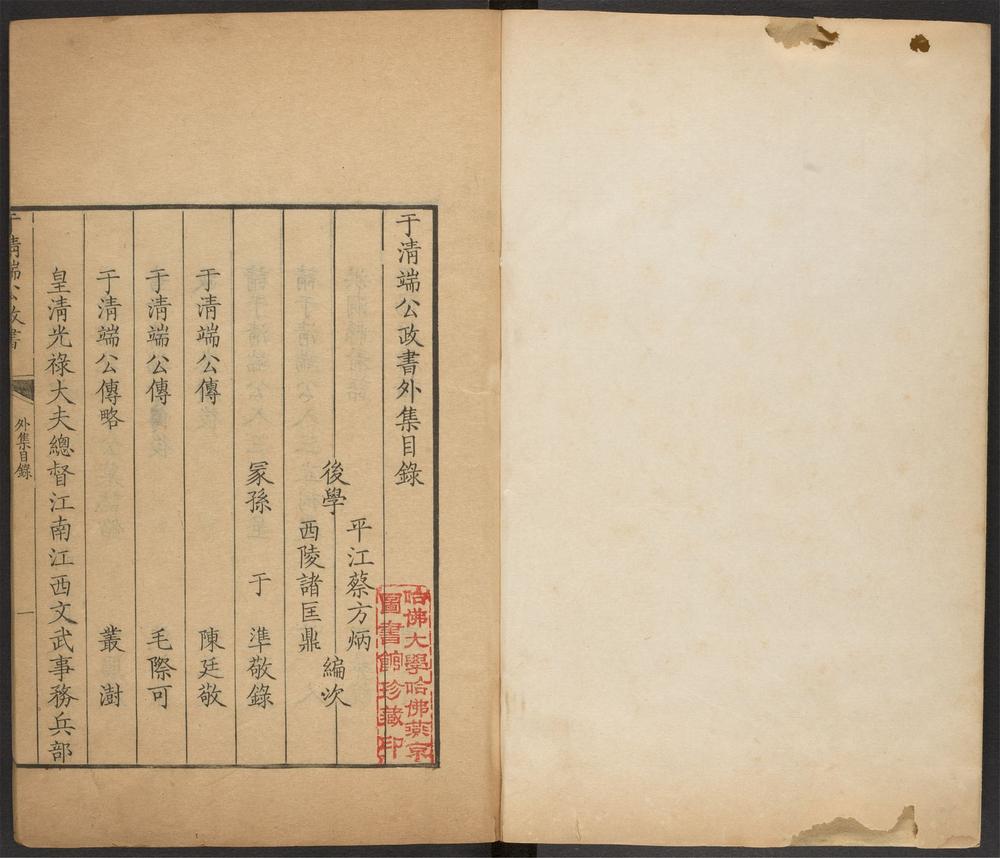 于清端公政書外集目錄
平江蔡方炳
後學
編次
西陵諸匡鼎
冡孫于準敬錄
于清端公傳 陳廷敬
于清端公傳 毛際可
于清端公傳略 叢澍
皇清光祿大夫總督江南江西文武事務兵部
于清端公政書
外集目錄
一
哈佛大學哈佛燕京
圖書館珍藏印